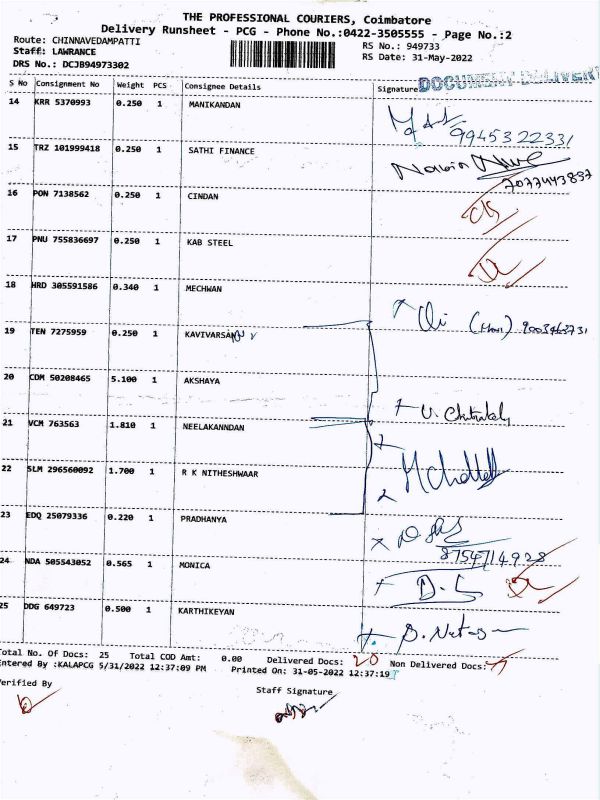 THE PROFESSIONAL COURIERS, Coimbatore
Delivery Runsheet - PCG - Phone No.:0422-3505555 - Page No.:2
Route: CHINNAVEDAMPATTI
Staff: LAWRANCE
DRS No.: DCJB94973302
RS No.: 949733
RS Date: 31-May-2022
S No Consignment No Weight PCS Consignee Details Signature DOCUMENT DELIVERY
14 KRR 5370993 0.250 1 MANIKANDAN
9945322331
15 TRZ 101999418 0.250 1 SATHI FINANCE
7077443897
16 PON 7138562 0.250 1 CINDAN
17 PNU 755836697 0.250 1 KAB STEEL
18 HRD 305591586 0.340 1 MECHWAN
19 TEN 7275959 0.250 1 KAVIVARSAN
20 CDM 50208465 5.100 1 AKSHAYA
21 VCM 763563 1.810 1 NEELAKANNDAN
22 SLM 296560092 1.700 1 R K NITHESHWAAR
23 EDQ 25079336 0.220 1 PRADHANYA
8754714928
24 NDA 505543052 0.565 1 MONICA
D. S
25 DDG 649723 0.500 1 KARTHIKEYAN
Total No. Of Docs: 25 Total COD Amt: 0.00 Delivered Docs: 20 Non Delivered Docs:
Entered By :KALAPCG 5/31/2022 12:37:09 PM Printed On: 31-05-2022 12:37:19
Verified By
Staff Signature